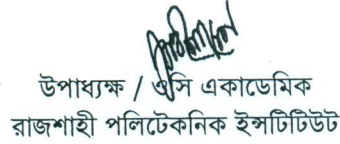 উপাধ্যক্ষ / ওসি একাডেমিক
রাজশাহী পলিটেকনিক ইন্সটিটিউট